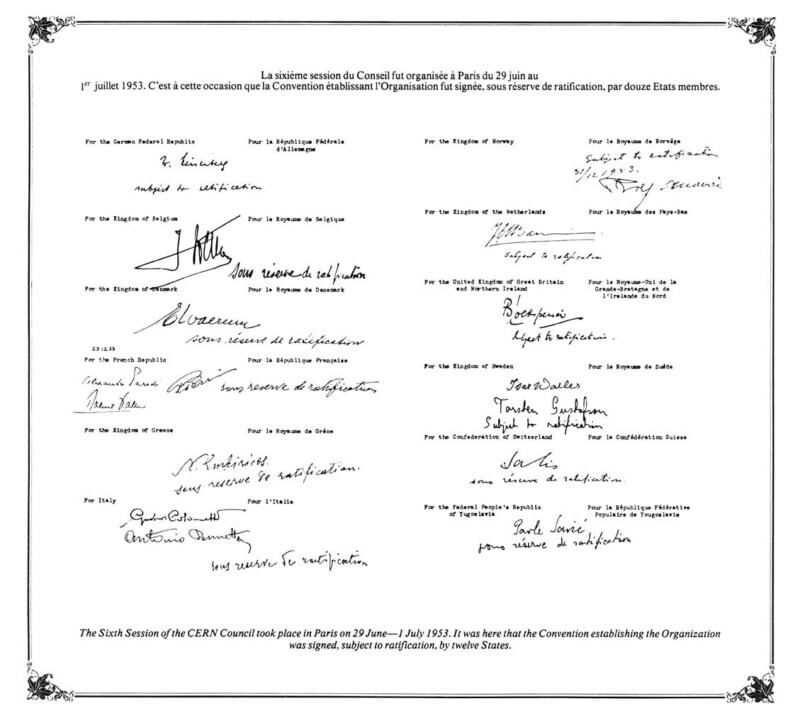 La sixième session du Conseil fut organisée à Paris du 29 juin au
1er juillet 1953. C'est à cette occasion que la Convention établissant l'Organisation fut signée, sous réserve de ratification, par douze Etats membres.
For the German Federal Republic
Pour la République Fédérale
d'Allemagne
subject to ratification
For the Kingdom of Belgium
Pour le Royaume de Belgique
sous réserve de ratification
For the Kingdom of Denmark
Pour le Royaume de Danemark
sous réserve de ratification
23.12.53
For the French Republic
Pour la République Française
sous reserve de ratification
For the Kingdom of Greece
Pour le Royaume de Grèce
sous reserve de ratification.
For Italy
Pour l'Italie
Antonio
sous reserve de ratification
For the Kingdom of Norway
Pour le Royaume de Norvège
Subject to ratification
31/12 1953.
For the Kingdom of the Netherlands
Pour le Royaume des Pays-Bas
Subject to ratification
For the United Kingdom of Great Britain
and Northern Ireland
Pour le Royaume-Uni de la
Grande-Bretagne et de
l'Irelande du Nord
subject to ratification.
For the Kingdom of Sweden
Pour le Royaume de Suède
Ivar Waller
Torsten Gustafson
Subject to ratification
For the Confederation of Switzerland
Pour la Confédération Suisse
sous réserve de ratification.
For the Federal People's Republic
of Yugoslavia
Pour la République Fédérative
Populaire de Yougoslavie
Pavle Savić
sous réserve de ratification
The Sixth Session of the CERN Council took place in Paris on 29 June—1 July 1953. It was here that the Convention establishing the Organization
was signed, subject to ratification, by twelve States.